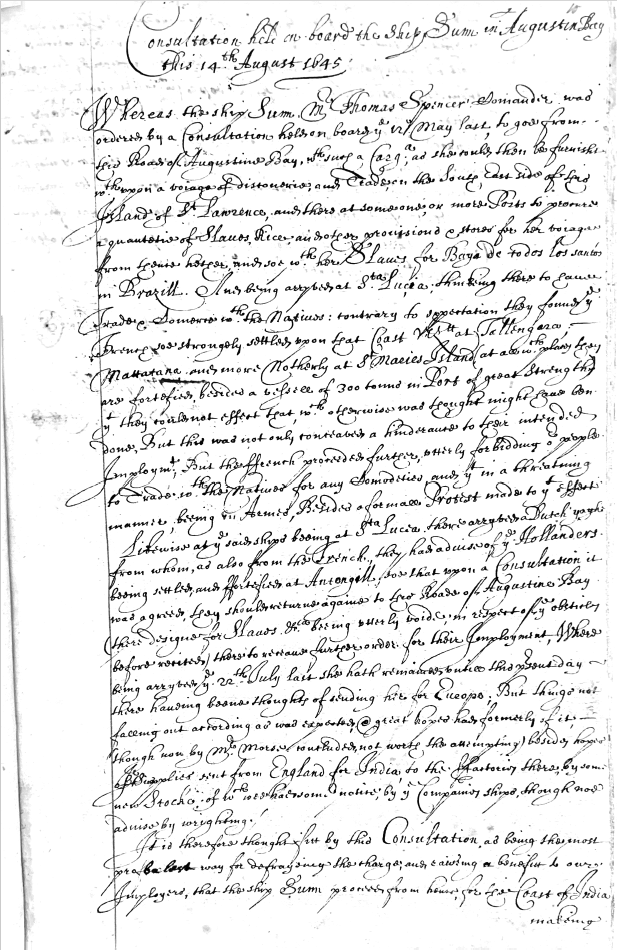 Consultation held on board the Ship Sunn in Augustin Bay
this 14th August 1645.
Whereas the ship Sunn, Mr Thomas Spencer Comander, was
ordered by a Consultation held on board ye 12th May last, to goe from
this Road of Augustine Bay, wth such a Cargo as she could then be furnisht
wth upon a voiage of discoverie, and Trade, on the South East side of this
Island of St Lawrence, and there at some one, or more Ports to procure
a quantetie of Slaves, Rice, and other provisions & stores for her voiage
from thence hether, and soe wth her Slaves for Baya de todos los santos
in Brazill. And being arryved at Sta Lucia, thinking there to have
Trade & Comerce wth the Natives: contrary to expectation they found ye
French soe strongely settled upon that Coast Vizt at Tallengara,
Mattatana and more Notherly at St Maries Island, at all wch places they
are fortefied, besides a vessell of 300 tonns in Port of great Strength;
yt they could not effect that, wch otherwise was thought might have ben
done, But this was not only conceaved a hinderance to their intended
Imploymt, But the ffrench proceeded further, utterly forbidding or people
to Trade wth the Natives for any Comodities, and yt in a threatning
manner, being in Armes, Besides a formall Protest made to yt effect
Likewise at ye said ships being at Sta Lucia, there arryved a Dutch
from whom, as also from the French, they had advise of ye Hollanders
beeing settled, and ffortefied at Antongell, soe that upon a Consultation it
was agreed, they should returne againe to this Roade of Augustine Bay
(there designe for Slaves &ca being utterly voide, in respect of ye obstacles
before recited) there to receave further order for their Imployment, Where
being arryved ye 22th July last she hath remained untill this psent day
there haveing beene thoughts of sending her for Europe; But things not
falling out according as was expected, (& great hopes had formerly of it,
though now by Mr Morse concluded not worth the attempting) besides hopes
of supplies sent from England for India, to the ffactories there, by some
new Stocke, of wch wee had some notice by ye Companies ships, though noe
advise by wrighting.
It is therefore thought fitt by this Consultation, as being the most
probablest way for defrayeing the charge, and raising a benefitt to our
Imployers, that the ship Sunn proceed from hence, for the Coast of India
makeing